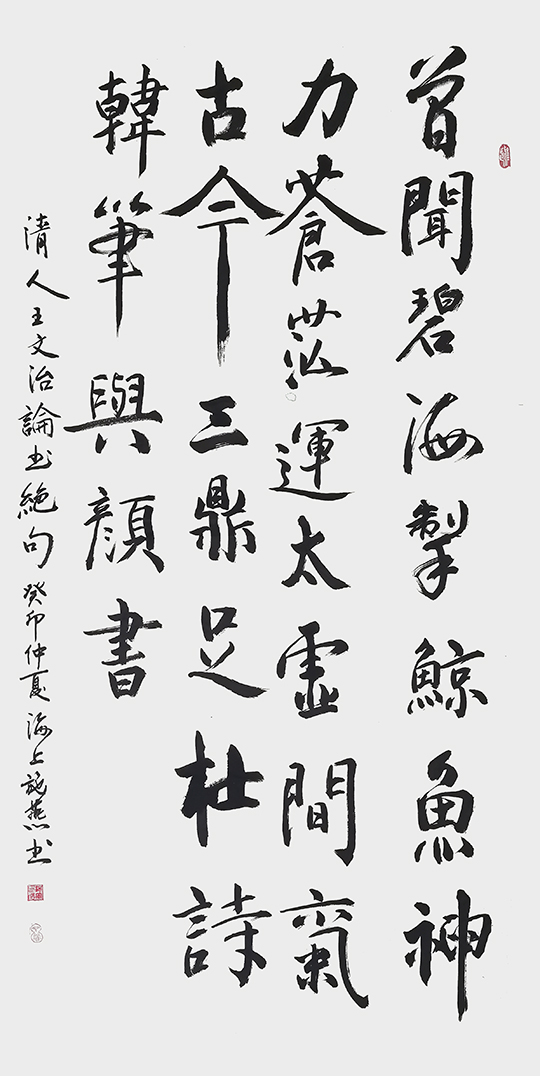 曾聞碧海掣鯨魚神
力蒼茫運太虛間氣
古今三鼎足杜詩
韓筆與顏書
清人王文治論书絕句 癸卯仲夏 海上施燕书